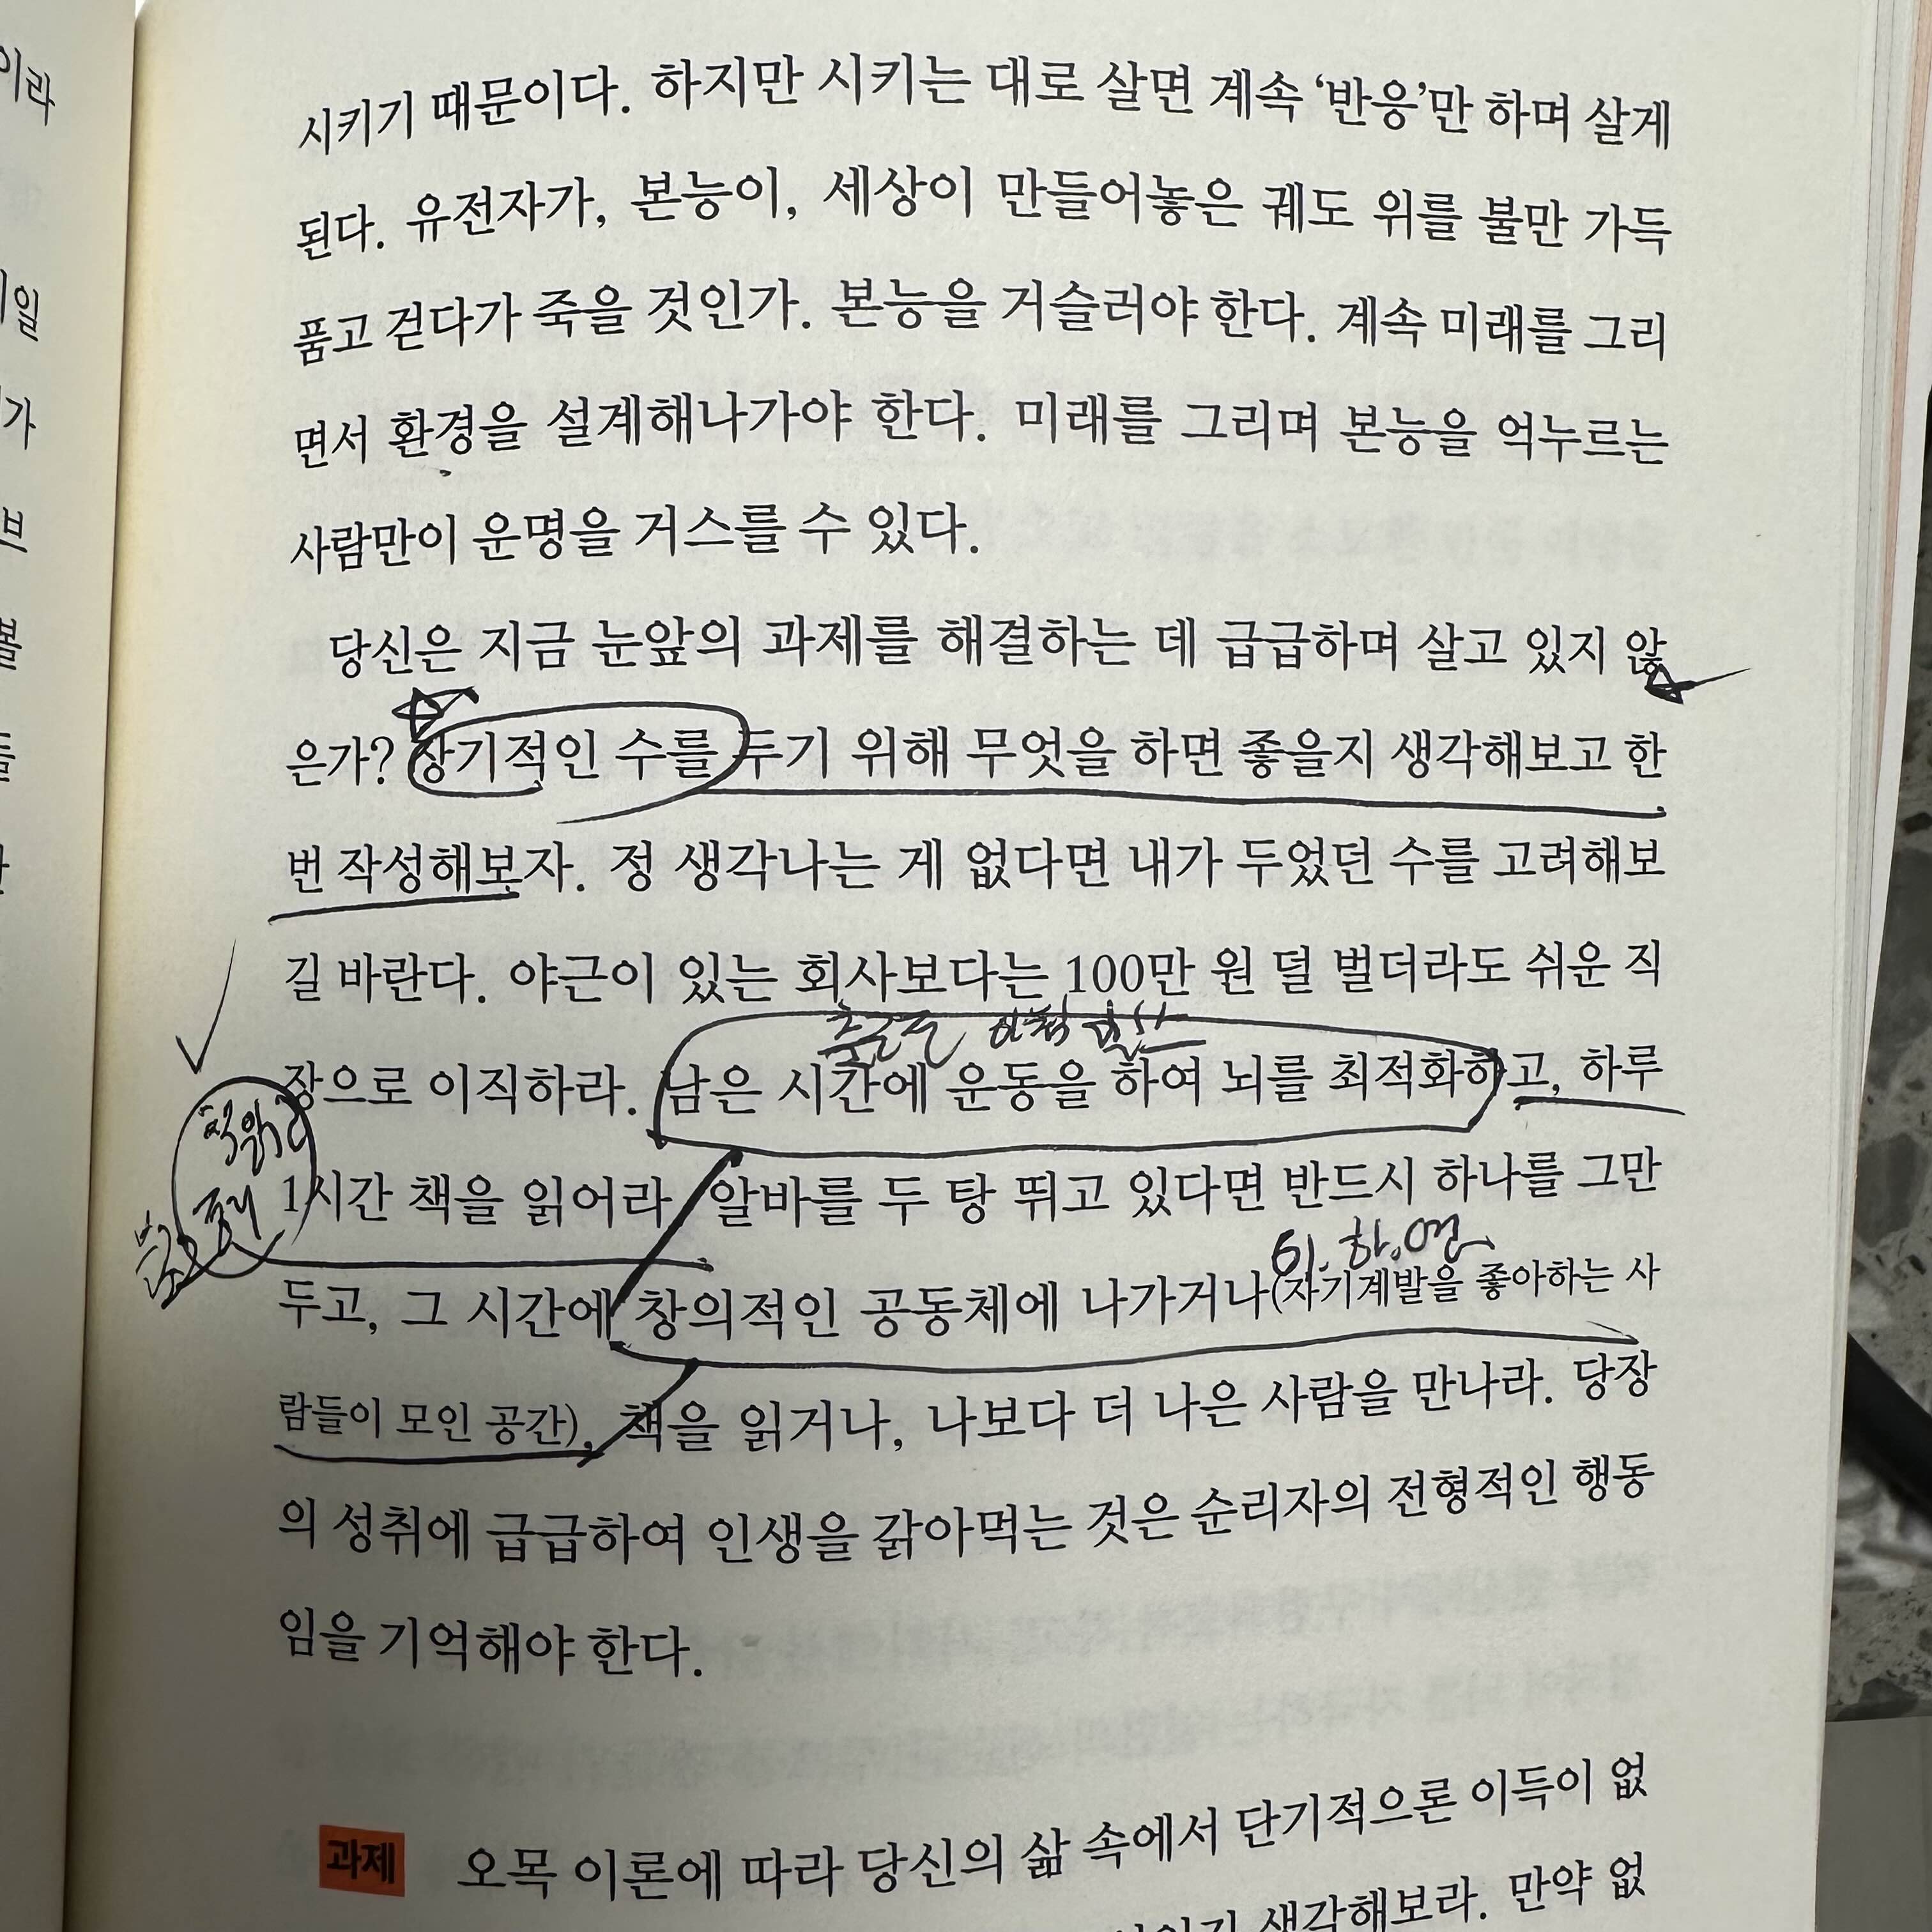 시키기 때문이다. 하지만 시키는 대로 살면 계속 ‘반응’만 하며 살게
된다. 유전자가, 본능이, 세상이 만들어놓은 궤도 위를 불만 가득
품고 걷다가 죽을 것인가. 본능을 거슬러야 한다. 계속 미래를 그리
면서 환경을 설계해나가야 한다. 미래를 그리며 본능을 억누르는
사람만이 운명을 거스를 수 있다.
당신은 지금 눈앞의 과제를 해결하는 데 급급하며 살고 있지 않
은가? 장기적인 수를 두기 위해 무엇을 하면 좋을지 생각해보고 한
번 작성해보자. 정 생각나는 게 없다면 내가 두었던 수를 고려해보
길 바란다. 야근이 있는 회사보다는 100만 원 덜 벌더라도 쉬운 직
장으로 이직하라. 남은 시간에 운동을 하여 뇌를 최적화하고, 하루
1시간 책을 읽어라. 알바를 두 탕 뛰고 있다면 반드시 하나를 그만
두고, 그 시간에 창의적인 공동체에 나가거나(자기계발을 좋아하는 사
람들이 모인 공간), 책을 읽거나, 나보다 더 나은 사람을 만나라. 당장
의 성취에 급급하여 인생을 갉아먹는 것은 순리자의 전형적인 행동
임을 기억해야 한다.
과제 오목 이론에 따라 당신의 삶 속에서 단기적으론 이득이 없
생각해보라. 만약 없
이라
일
가
브
볼
들